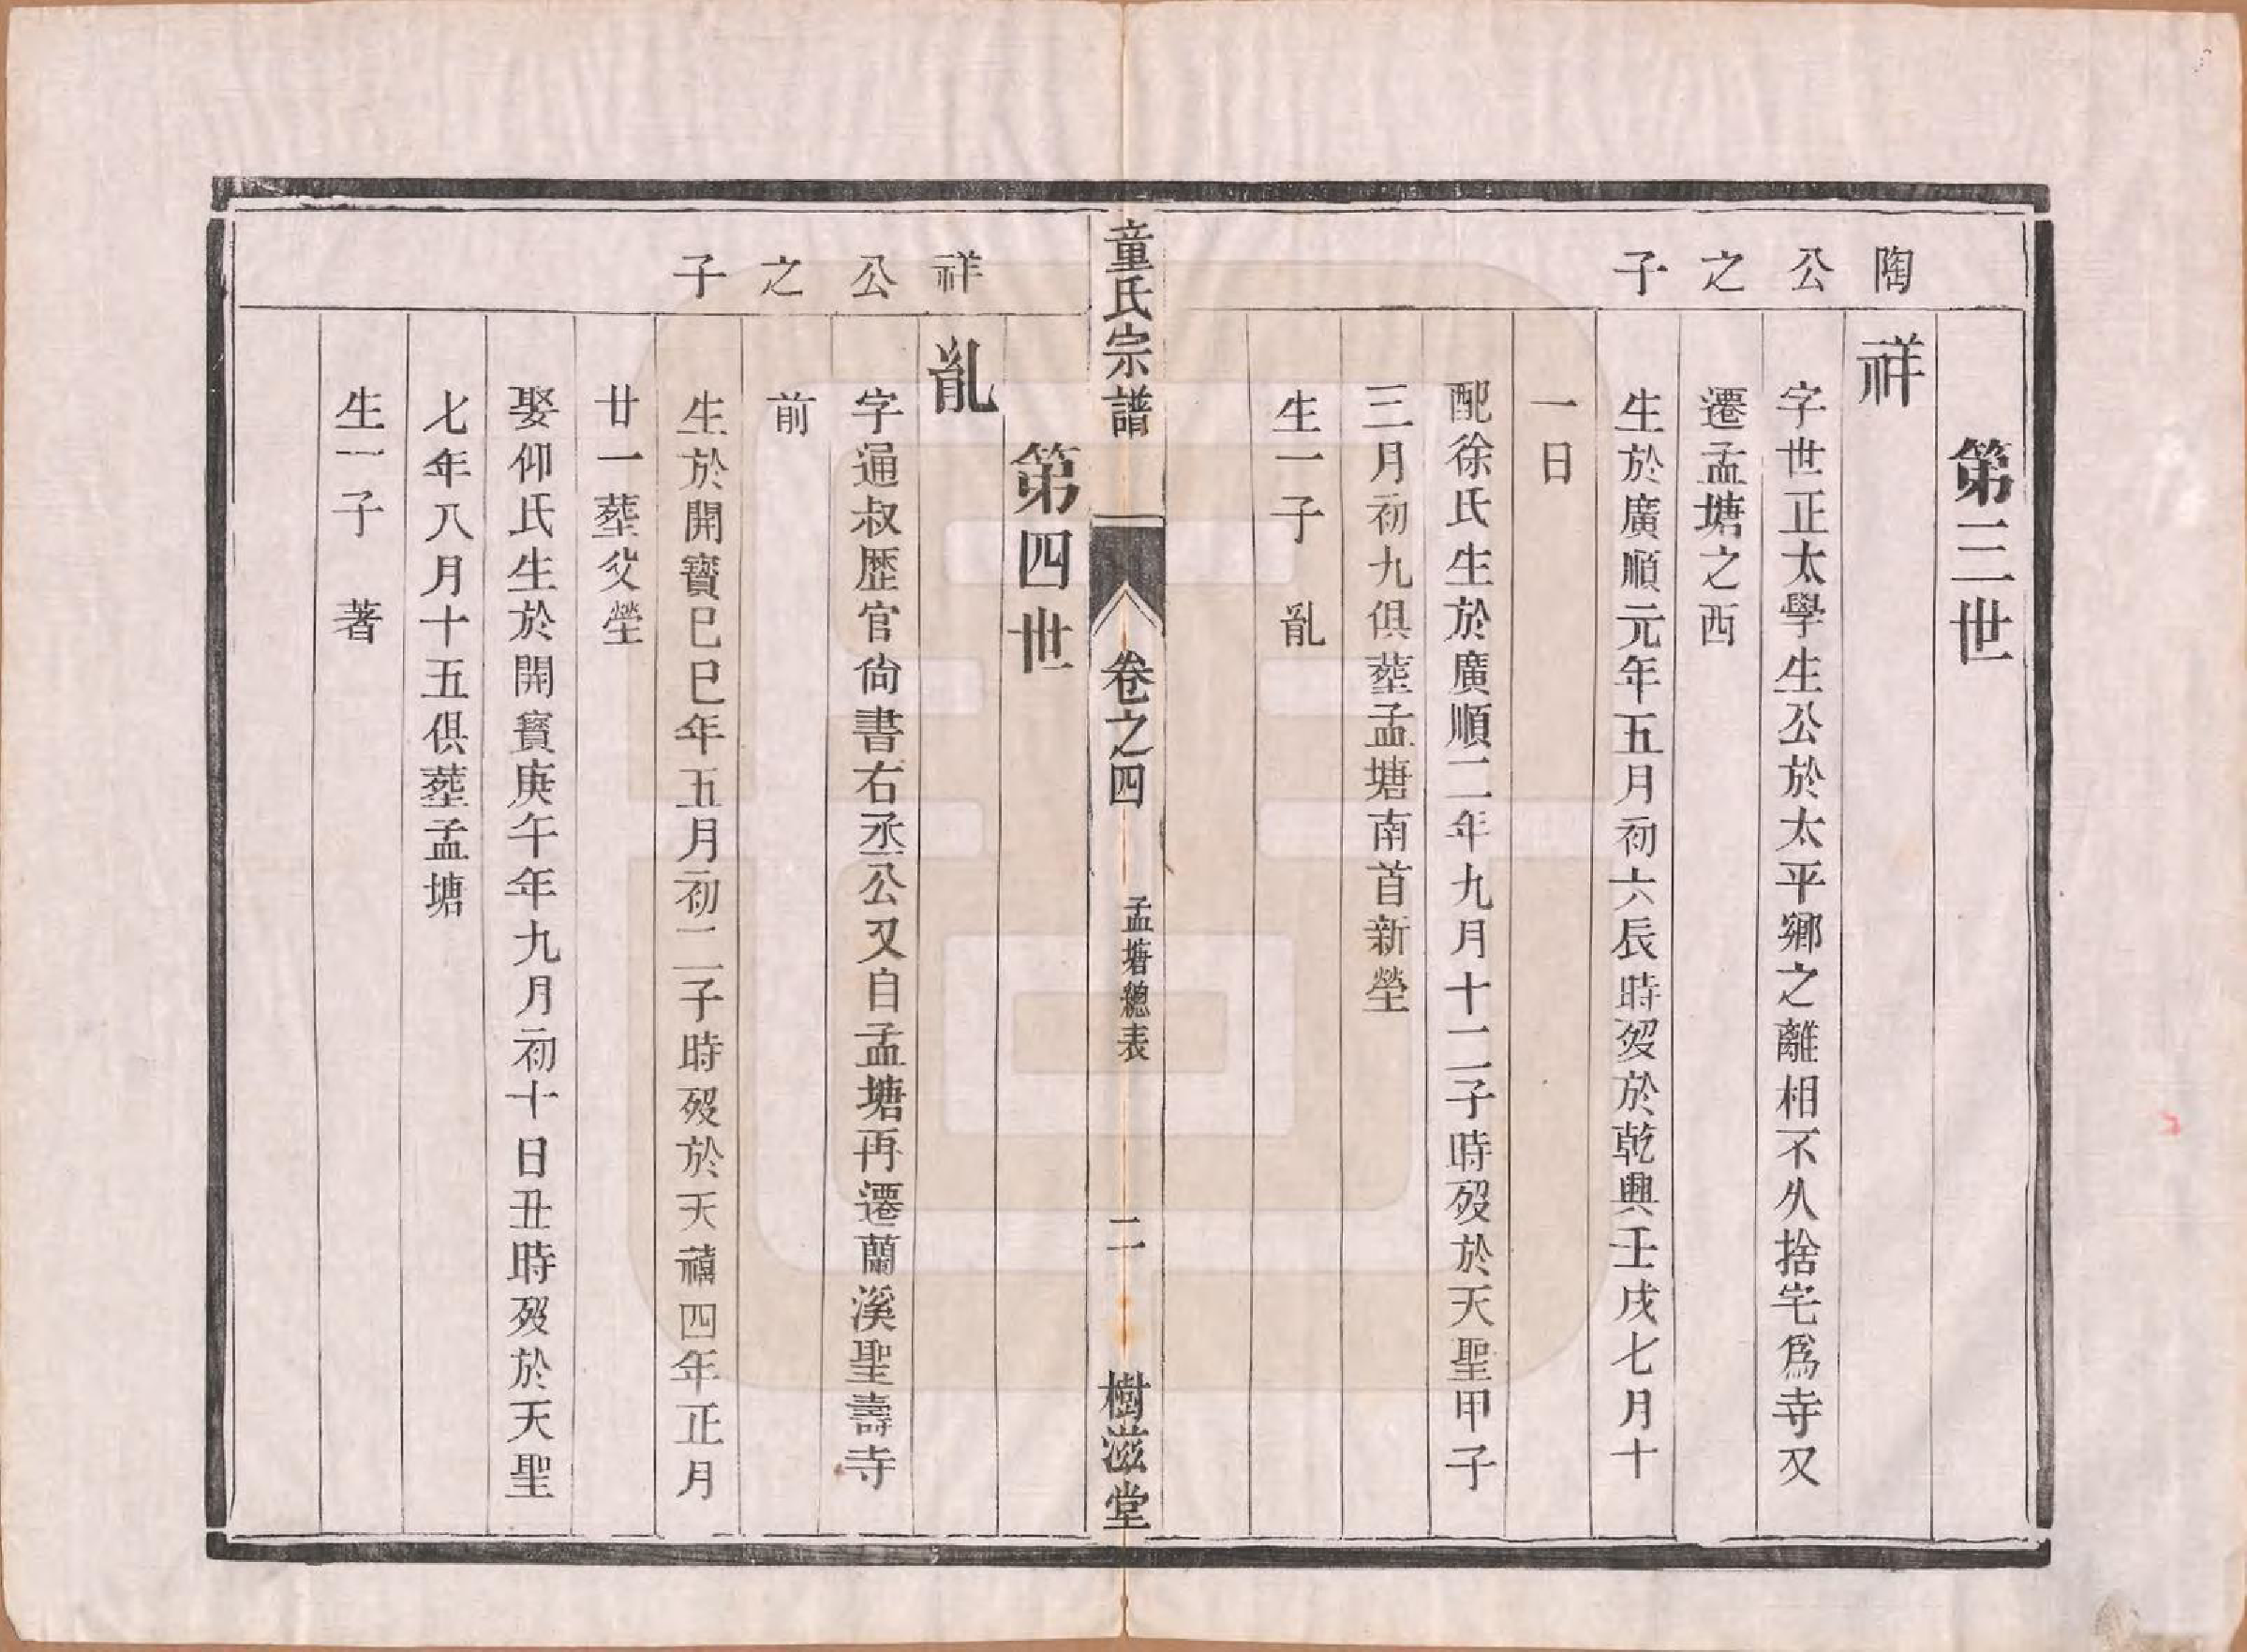 第三世
陶公之子
祥
字世正太學生公於太平鄉之離相不久捨宅爲寺又
遷孟塘之西
生於廣順元年五月初六辰時歿於乾興壬戌七月十
一日
配徐氏生於廣順二年九月十二子時歿於天聖甲子
三月初九俱葬孟塘南首新塋
生一子 亂
童氏宗譜 卷之四 孟塘總表 二 樹滋堂
第四世
祥公之子
亂
字通叔歷官尙書右丞公又自孟塘再遷蘭溪聖壽寺
前
生於開寶己巳年五月初二子時歿於天禧四年正月
廿一葬父塋
娶仰氏生於開寶庚午年九月初十日丑時歿於天聖
七年八月十五俱葬孟塘
生一子 著